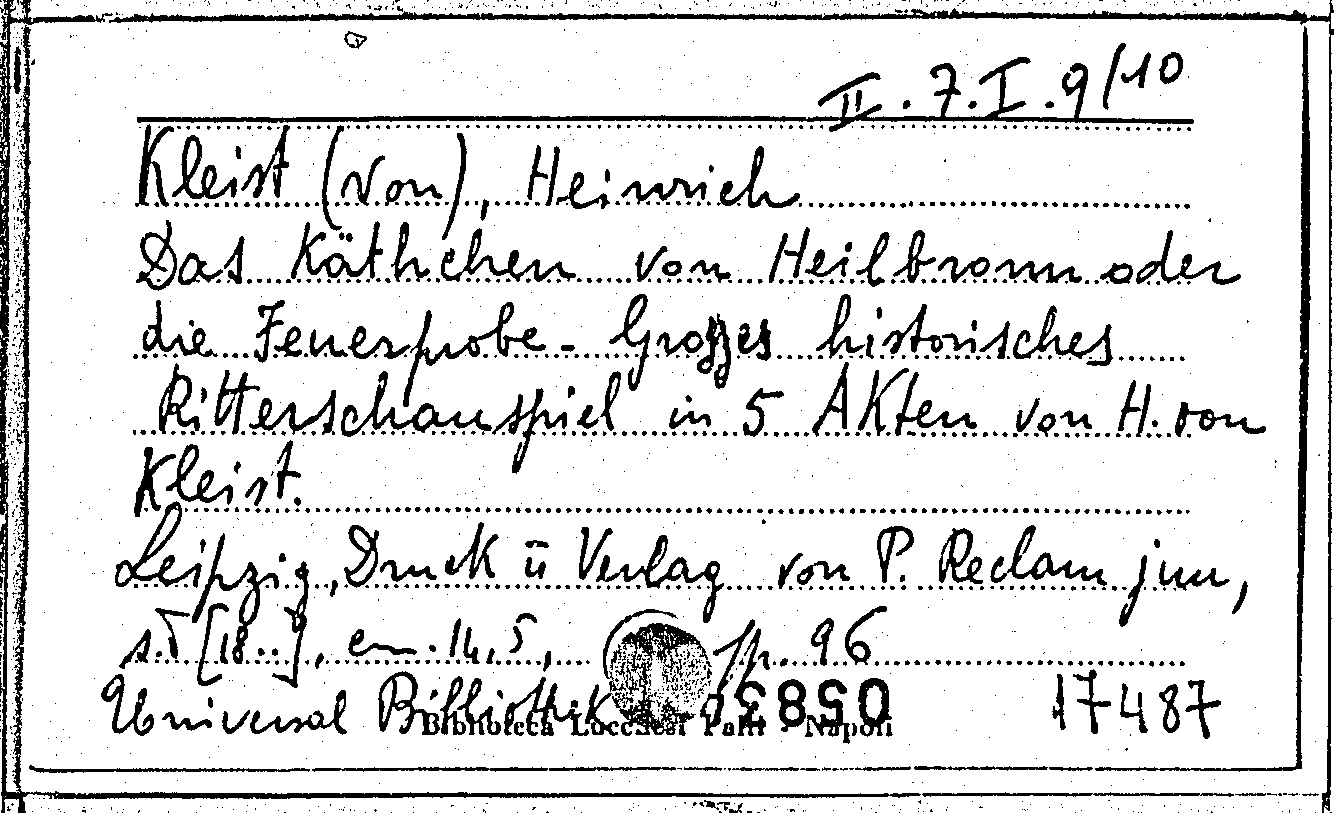 II.7.I.9/10
Kleist (von), Heinrich
Das Käthchen von Heilbronn oder
die Feuerprobe - Großes historisches
Ritterschauspiel in 5 Akten von H. von
Kleist.
Leipzig, Druck ü Verlag von P. Reclam jun,
s.d [18..], cm. 14,5, pp. 96
Universal Bibliothek 0583
Biblioteca Lucchesi Palli - Napoli
17487